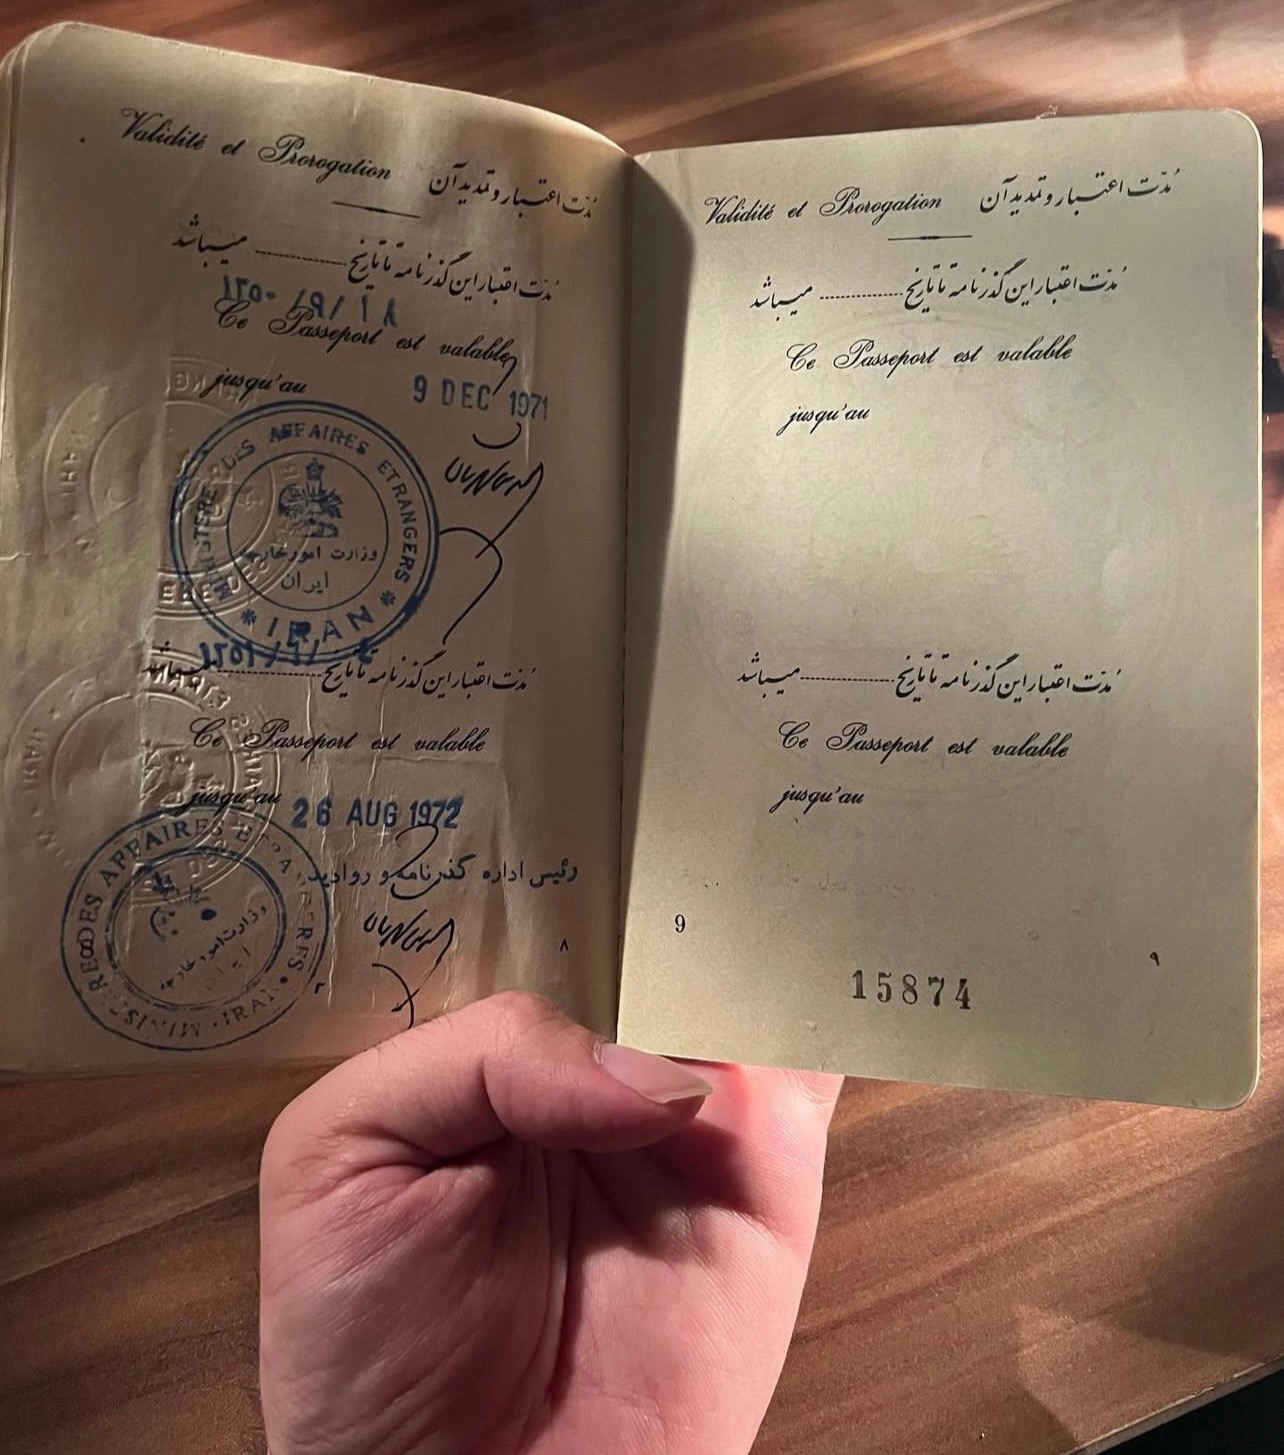 Validité et Prorogation مدّت اعتبار و تمدید آن
مدّت اعتبار این گذرنامه تا تاریخ ............ میباشد
۱۳۵۰/۹/۱۸
Ce Passeport est valable
jusqu'au 9 DEC 1971
MINISTERE DES AFFAIRES ETRANGERES
وزارت امور خارجه
ایران
* IRAN *
مدّت اعتبار این گذرنامه تا تاریخ ............ میباشد
۱۳۵۱/۶/۴
Ce Passeport est valable
jusqu'au 26 AUG 1972
رئیس اداره گذرنامه و روادید
DES AFFAIRES
وزارت امور خارجه
IRAN
۸
۲
Validité et Prorogation مدّت اعتبار و تمدید آن
مدّت اعتبار این گذرنامه تا تاریخ ............ میباشد
Ce Passeport est valable
jusqu'au
مدّت اعتبار این گذرنامه تا تاریخ ............ میباشد
Ce Passeport est valable
jusqu'au
9 ۹
15874